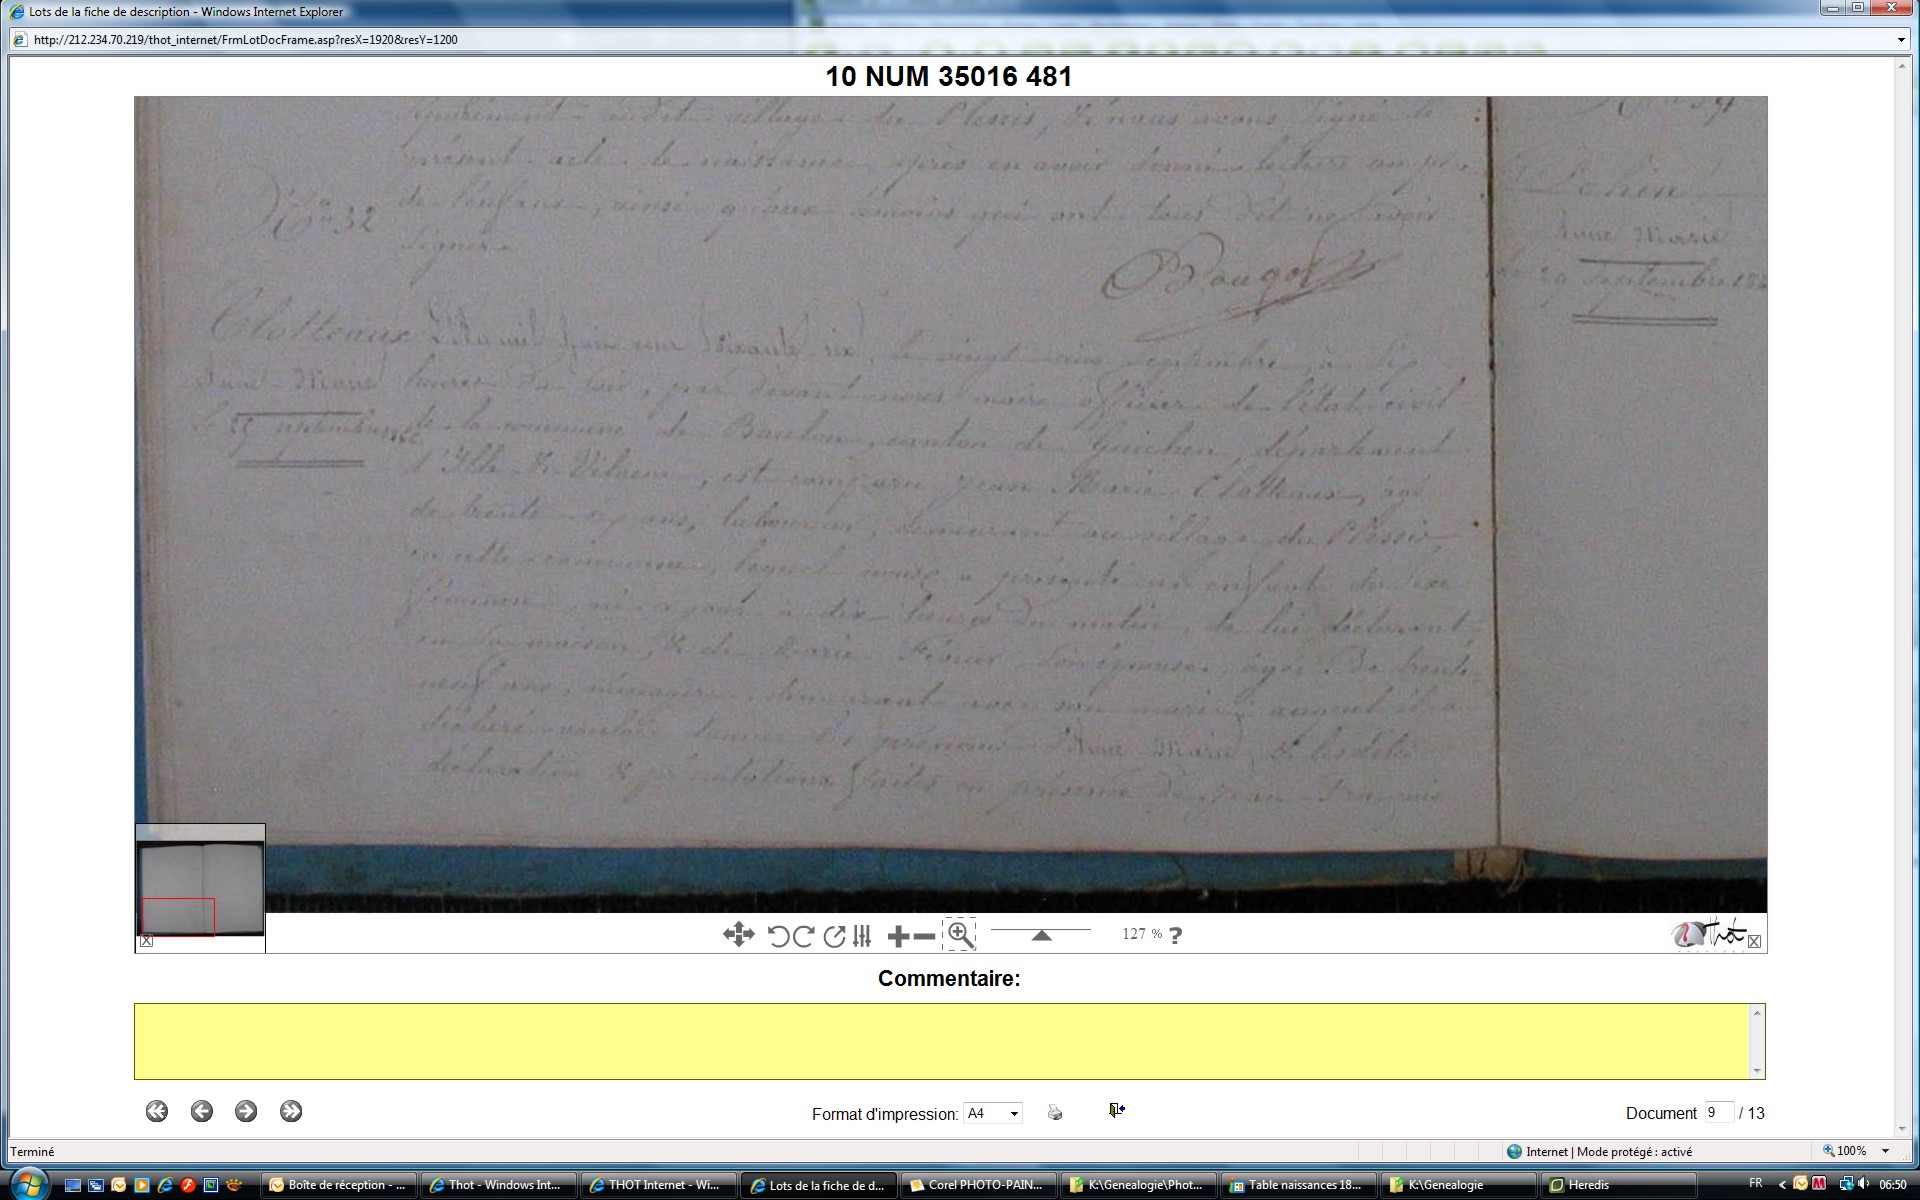 Lots de la fiche de description - Windows Internet Explorer
http://212.234.70.219/thot_internet/FrmLotDocFrame.asp?resX=1920&resY=1200
10 NUM 35016 481
village du Plessis, & nous avons signé le
présent acte de naissance après en avoir donné lecture au père
de l'enfant, ainsi qu'aux témoins qui ont tous dit ne savoir
signer.
N° 32
Clotteaux
Anne Marie
le 25 septembre
L'An mil huit cent soixante six, le vingt cinq septembre, à six
heures du soir, par devant nous maire officier de l'état civil
de la commune de Baulon, canton de Guichen, département
d'Ille & Vilaine, est comparu Jean Marie Clotteaux, âgé
de trente ans, laboureur, demeurant au village du Plessis,
en cette commune, lequel nous a présenté un enfant du sexe
féminin, né ce jour à dix heures du matin, de lui déclarant
en sa maison, & de Marie son épouse, âgée de trente
neuf ans, ménagère, demeurant avec son mari, auquel il a
déclaré vouloir donner les prénoms d'Anne Marie, & lesdites
déclaration & présentation faites en présence de Jean François
Anne Marie
le 29 septembre
Thot
127 % ?
Commentaire:
Format d'impression: A4
Document 9 / 13
Terminé
Internet | Mode protégé : activé
100%
Boîte de réception - ...
Thot - Windows Int...
THOT Internet - Wi...
Lots de la fiche de d...
Corel PHOTO-PAIN...
K:\Genealogie\Phot...
Table naissances 18...
K:\Genealogie
Heredis
FR
06:50